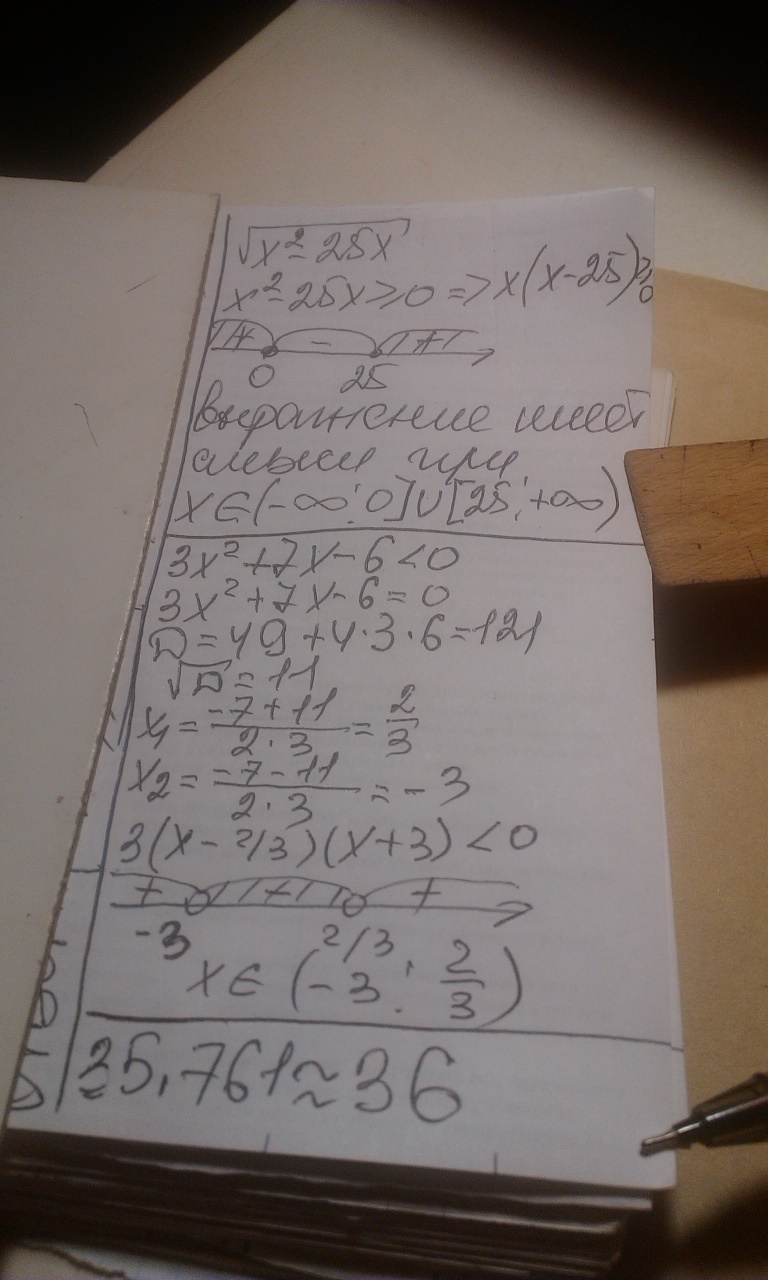 √x²-25x
x²-25x≥0 => x(x-25)≥0
+ - +
0 25
выражение имеет
смысл при
x∈(-∞;0]∪[25;+∞)
3x²+7x-6<0
3x²+7x-6=0
D=49+4·3·6=121
√D=11
x₁=(-7+11)/(2·3)=2/3
x₂=(-7-11)/(2·3)=-3
3(x-2/3)(x+3)<0
+ - +
-3 2/3
x∈(-3; 2/3)
35,761≈36